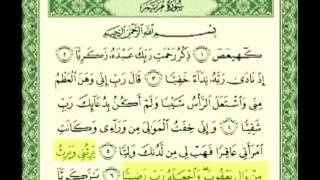 سورة مريم
بسم الله الرحمن الرحيم
كهيعص ١ ذكر رحمت ربك عبده زكريا ٢
إذ نادى ربه نداء خفيا ٣ قال رب إني وهن العظم
مني واشتعل الرأس شيبا ولم أكن بدعائك رب
شقيا ٤ وإني خفت الموالي من وراءي وكانت
امرأتي عاقرا فهب لي من لدنك وليا ٥ يرثني ويرث
من ءال يعقوب واجعله رب رضيا ٦ يزكريا